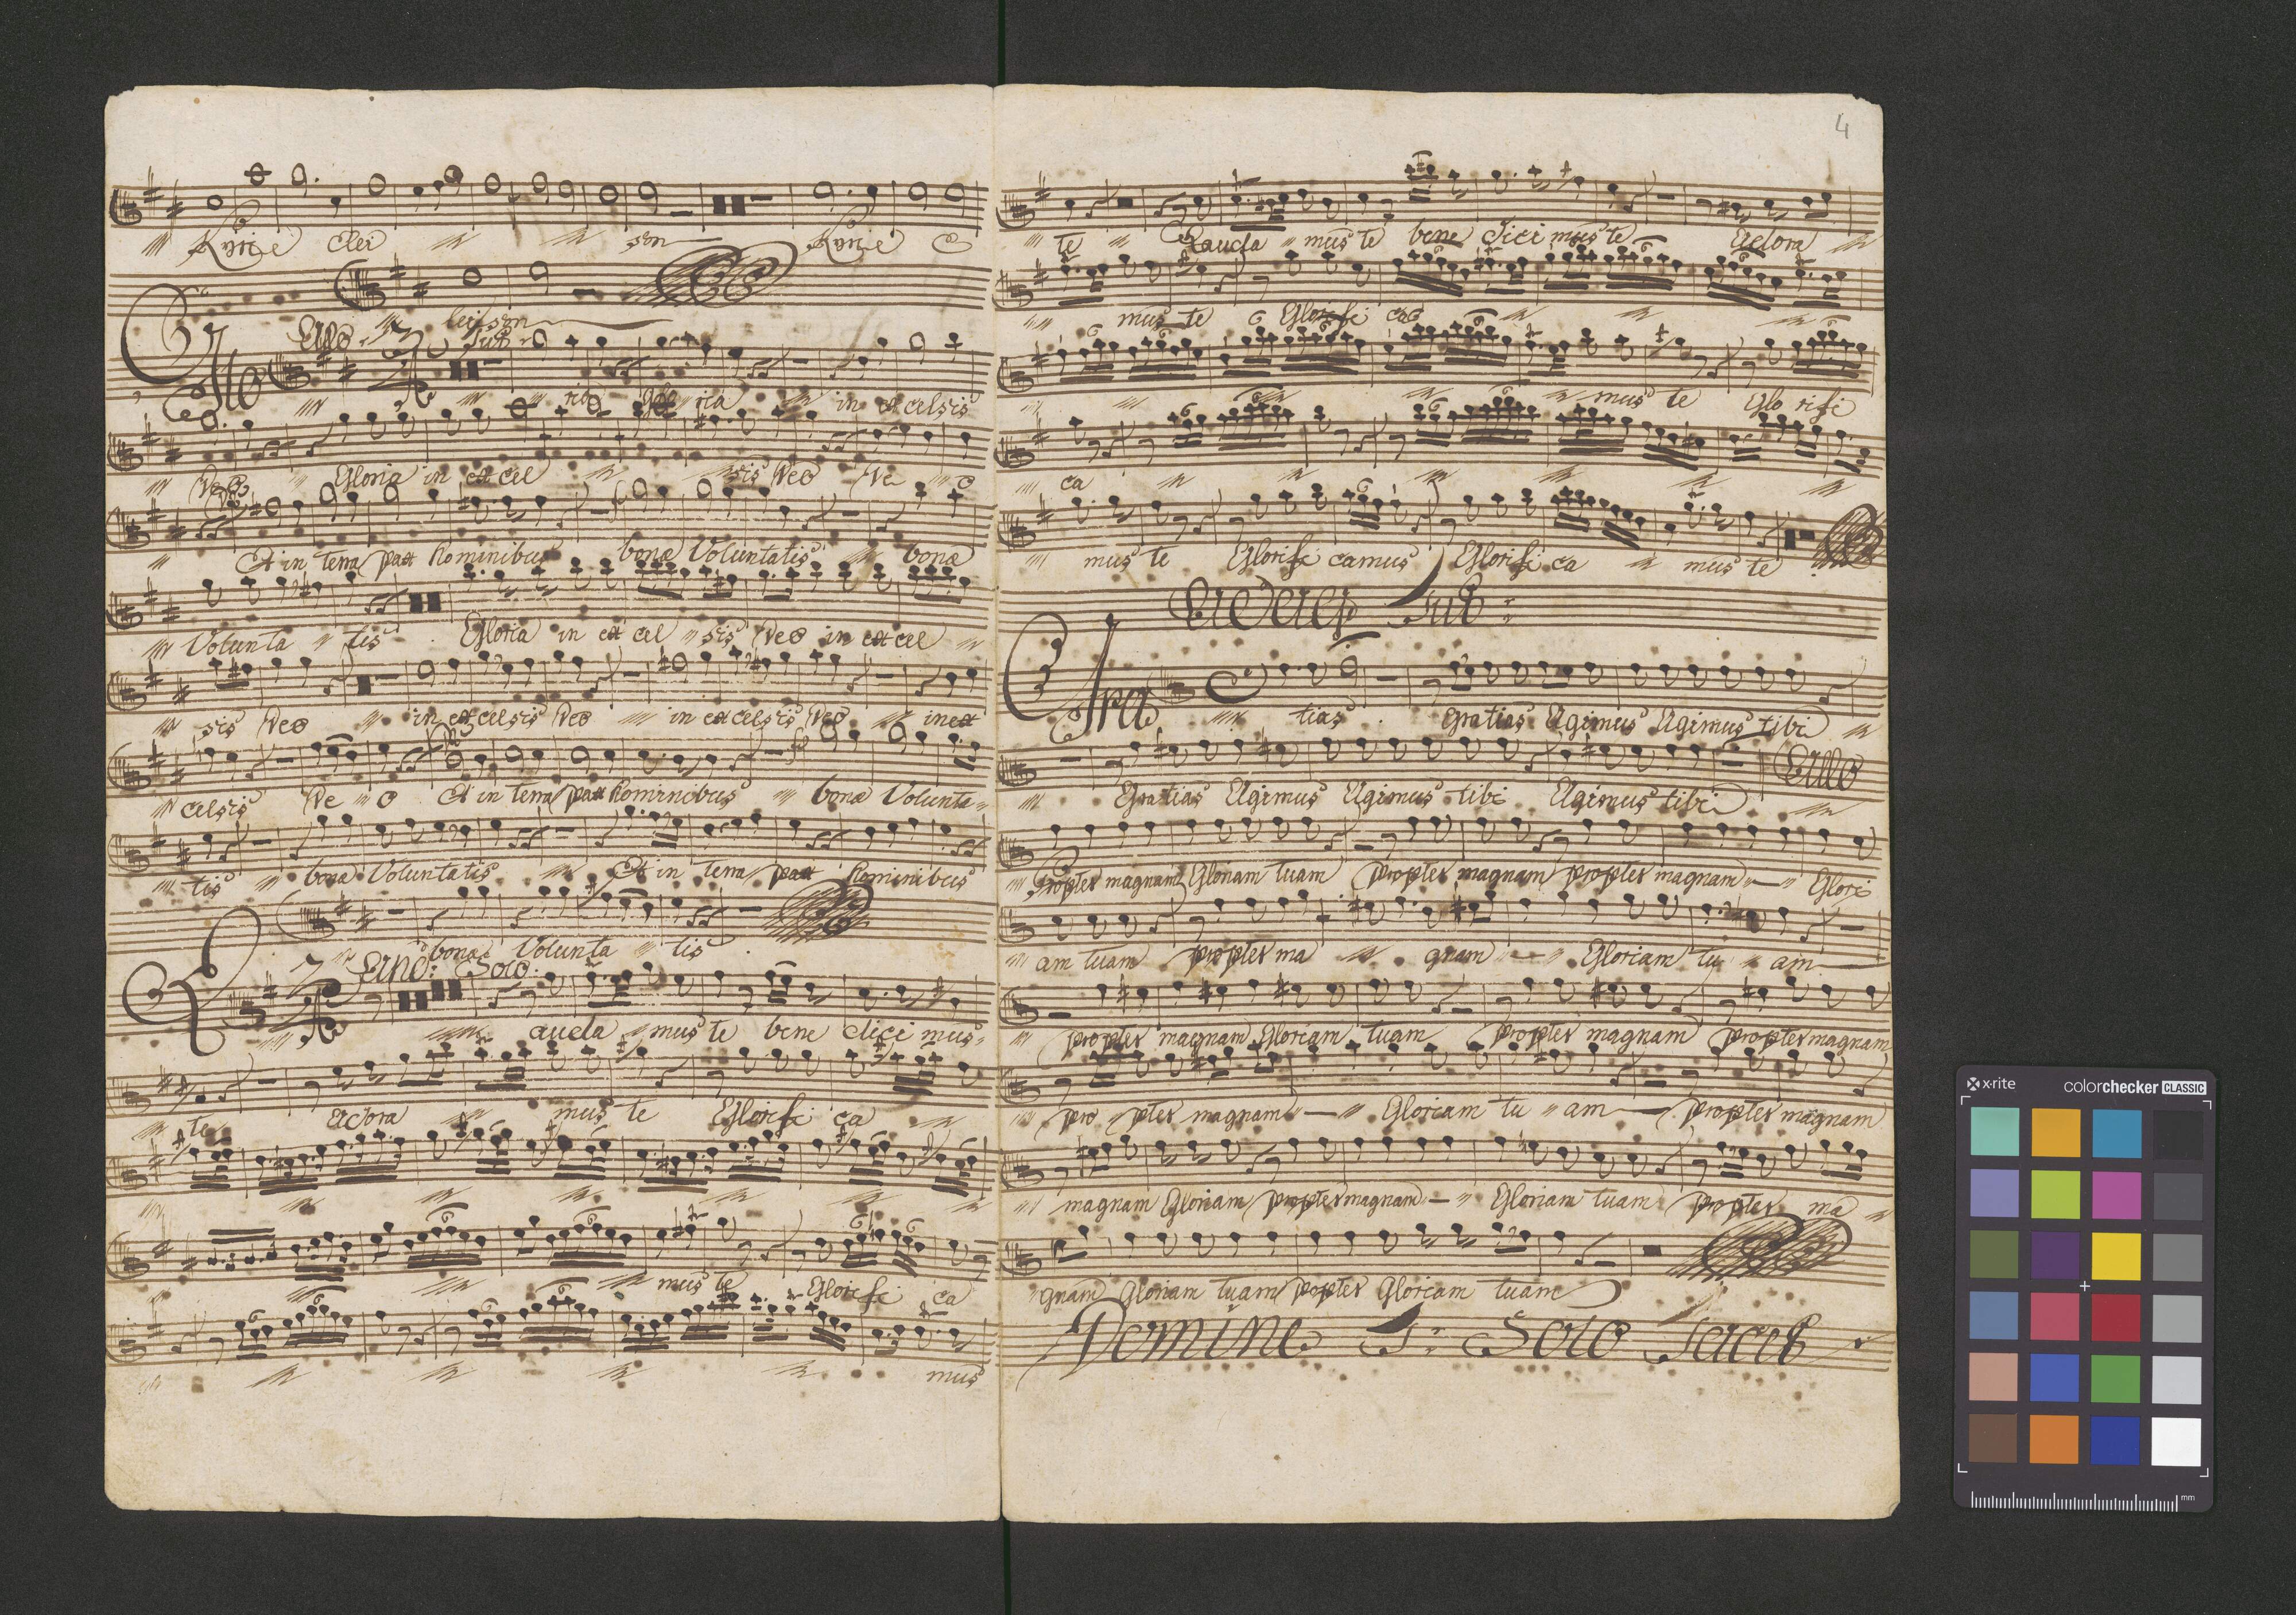 Kyrie elei son Kyrie e
leison
Allo
Glo ria glo ria in excelsis
Deo Gloria in excel sis Deo De o
Et in terra pax hominibus bonæ Voluntatis bonæ
Volunta tis Gloria in excel sis Deo in excel
sis Deo in excelsis Deo in excelsis Deo in ex
celsis De o Et in terra pax hominibus bonæ Volunta
tis bona Voluntatis Et in terra pax hominibus
bona Volunta tis
And: Solo.
Lauda mus te bene dici mus
te adora mus te Glorifi ca
mus te Glorifi ca
mus
4
te Lauda mus te bene dici mus te Adora
mus te Glorifi ca
mus te Glo rifi
ca
mus te Glorifi camus Glorifi ca mus te
Adag: Tut:
Gra tias Gratias Agimus Agimus tibi
Gratias Agimus Agimus tibi Agimus tibi Allo
Propter magnam Gloriam tuam propter magnam propter magnam Glori
am tuam propter ma gnam Gloriam tu am
propter magnam Gloriam tuam propter magnam propter magnam
pro pter magnam Gloriam tu am propter magnam
magnam Gloriam propter magnam Gloriam tuam propter ma
gnam Gloriam tuam propter Gloriam tuam
Domine S: Solo Tacet